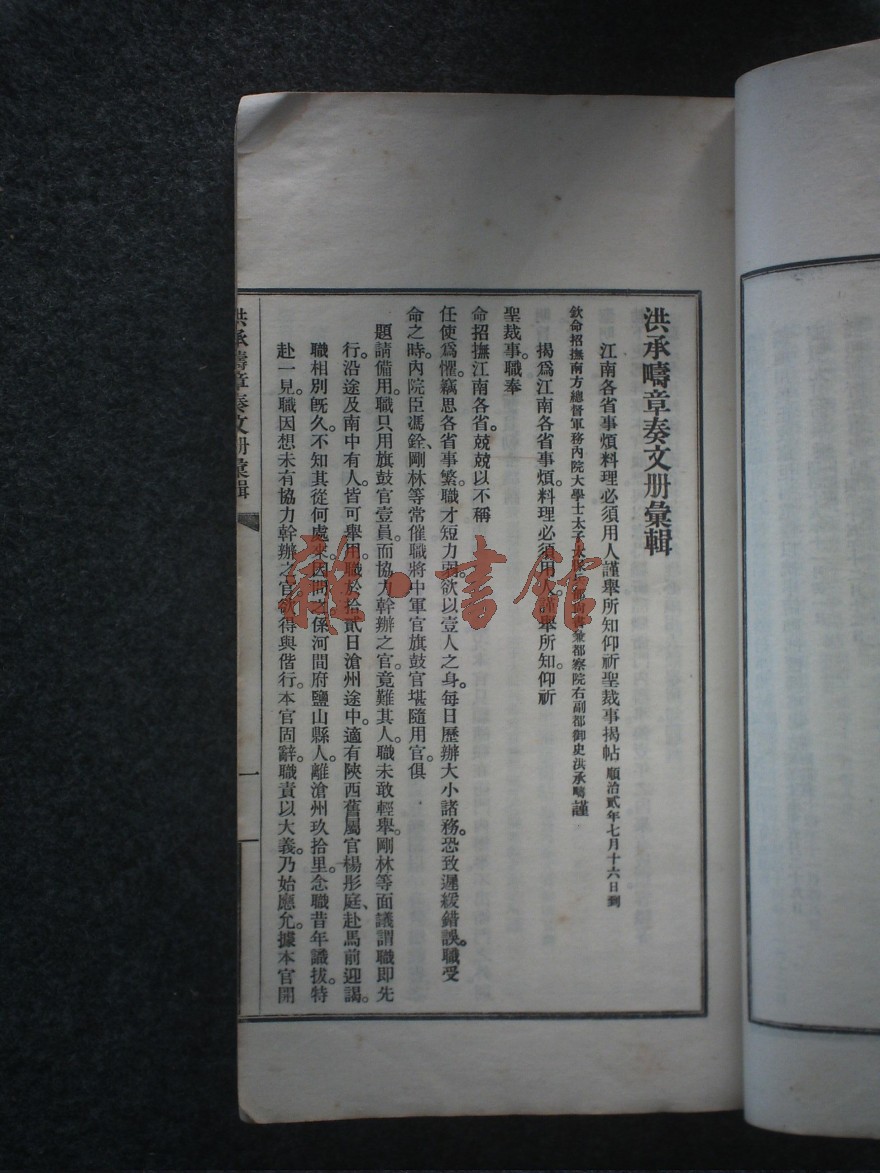 洪承疇章奏文册彙輯
江南各省事煩料理必須用人謹舉所知仰祈聖裁事揭帖 順治貳年七月十六日到
欽命招撫南方總督軍務內院大學士太子太保兵部尚書兼都察院右副都御史洪承疇謹
揭爲江南各省事煩。料理必須用人。謹舉所知。仰祈
聖裁事。職奉
命招撫江南各省。兢兢以不稱
任使爲懼。竊思各省事繁。職才短力弱。欲以壹人之身。每日歷辦大小諸務。恐致遲緩錯誤。職受
命之時。內院臣馮銓、剛林等常催職將中軍官旗鼓官堪隨用官。俱
題請備用。職只用旗鼓官壹員。而協力幹辦之官。竟難其人。職未敢輕舉。剛林等面議謂職即先
行。沿途及南中有人。皆可舉用。職於拾貳日滄州途中。適有陝西舊屬官楊彤庭、赴馬前迎謁。
職相別既久。不知其從何處來。因問之。係河間府鹽山縣人。離滄州玖拾里。念職昔年識拔。特
赴一見。職因想未有協力幹辦之官。欲得與偕行。本官固辭。職責以大義。乃始應允。據本官開
洪承疇章奏文册彙輯
一
雜·書館